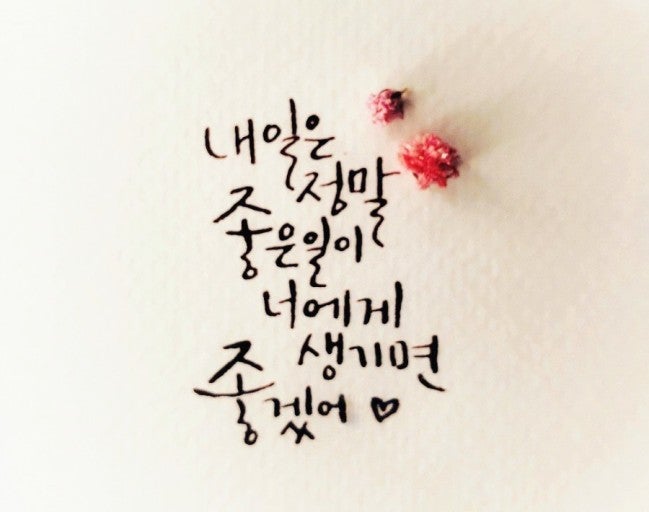 내일은
정말
좋은일이
너에게
생기면
좋겠어 ♡